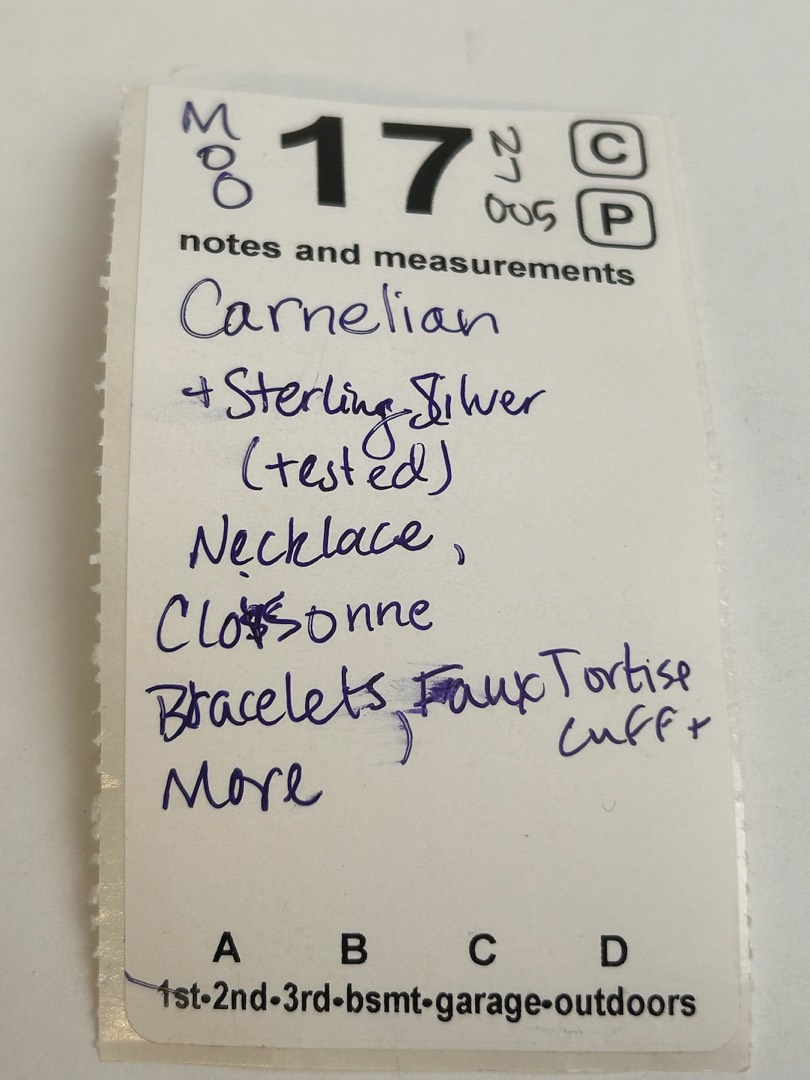 MOO 17 27 005 C
P
notes and measurements
Carnelian
+ Sterling Silver
(tested)
Necklace,
Cloissonne
Bracelets, Faux Tortise
cuff +
More
A B C D
1st•2nd•3rd•bsmt•garage•outdoors